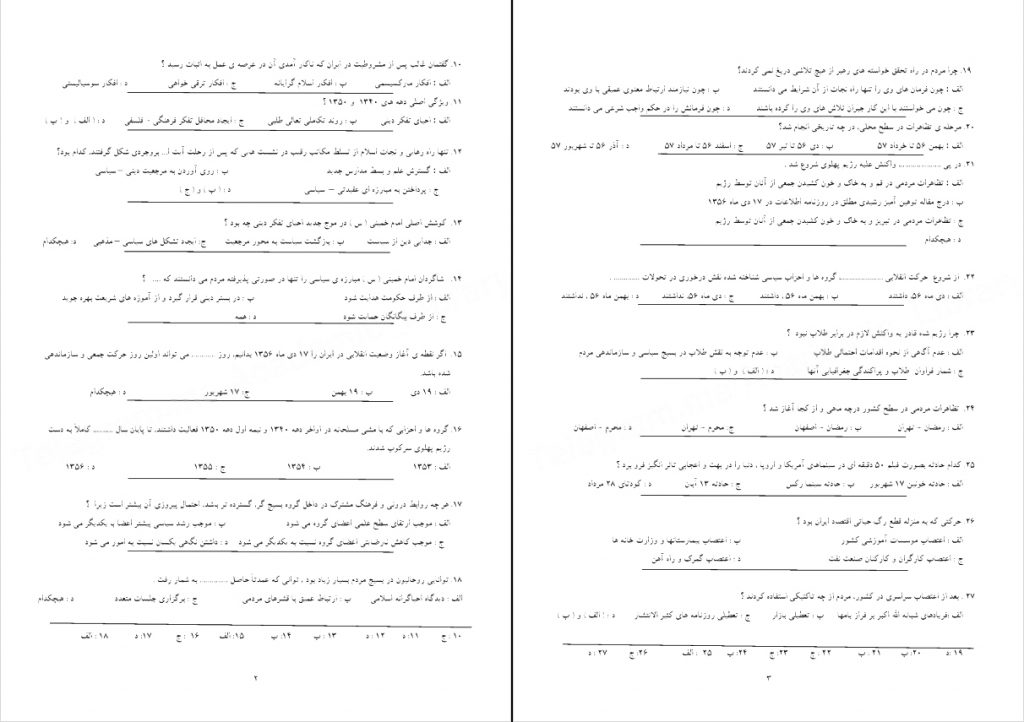 ۱۰. گفتمان غالب پس از مشروطیت در ایران که ناکار آمدی آن در عرصه ی عمل به اثبات رسید ؟
الف : افکار مارکسیسمی ب : افکار اسلام گرایانه ج : افکار ترقی خواهی د : افکار سوسیالیستی
۱۱. ویژگی اصلی دهه های ۱۳۴۰ و ۱۳۵۰ ؟
الف : احیای تفکر دینی ب : روند تکاملی تعالی طلبی ج : ایجاد محافل تفکر فرهنگی - فلسفی د : ( الف ) و ( ب )
۱۲. تنها راه رهایی و نجات اسلام از تسلط مکاتب رقیب در نشست هایی که پس از رحلت آیت ا... بروجردی شکل گرفتند، کدام بود؟
الف : گسترش علم و بسط مدارس جدید ب : روی آوردن به مرجعیت دینی – سیاسی
ج : پرداختن به مبارزه ای عقیدتی – سیاسی د : ( ب ) و ( ج )
۱۳. کوشش اصلی امام خمینی ( س ) در موج جدید احیای تفکر دینی چه بود ؟
الف : جدایی دین از سیاست ب : بازگشت سیاست به محور مرجعیت ج: ایجاد تشکل های سیاسی – مذهبی د: هیچکدام
۱۴. شاگردان امام خمینی ( س ) مبارزه ی سیاسی را تنها در صورتی پذیرفته مردم می دانستند که .... ؟
الف : از طرف حکومت هدایت شود ب : در بستر دینی قرار گیرد و از آموزه های شریعت بهره جوید
ج : از طرف بیگانگان حمایت شود د : همه
۱۵. اگر نقطه ی آغاز وضعیت انقلابی در ایران را ۱۷ دی ماه ۱۳۵۶ بدانیم، روز .......... می تواند اولین روز حرکت جمعی و سازماندهی
شده باشد.
الف : ۱۹ دی ب : ۱۹ بهمن ج: ۱۷ شهریور د : هیچکدام
۱۶. گروه ها و احزابی که با مشی مسلحانه در اواخر دهه ۱۳۴۰ و نیمه اول دهه ۱۳۵۰ فعالیت داشتند، تا پایان سال .......... کاملاً به دست
رژیم پهلوی سرکوب شدند.
الف : ۱۳۵۳ ب : ۱۳۵۴ ج : ۱۳۵۵ د : ۱۳۵۶
۱۷. هر چه روابط درونی و فرهنگ مشترک در داخل گروه بسیج گر، گسترده تر باشد، احتمال پیروزی آن بیشتر است زیرا ؟
الف : موجب ارتقای سطح علمی اعضای گروه می شود ب : موجب رشد سیاسی بیشتر اعضا با یکدیگر می شود
ج : موجب کاهش نارضایتی اعضای گروه نسبت به یکدیگر می شود د : داشتن نگاهی یکسان نسبت به امور می شود
۱۸. توانایی روحانیون در بسیج مردم بسیار زیاد بود ، توانی که عمدتاً حاصل ............. به شمار رفت
الف : دیدگاه احیاگرانه اسلامی ب : ارتباط عمیق با قشرهای مردمی ج : برگزاری جلسات متعدد د : هیچکدام
۱۰ : ج ۱۱: د ۱۲ : د ۱۳ : ب ۱۴: ب ۱۵: الف ۱۶ : ج ۱۷: د ۱۸ : الف
۲
۱۹. چرا مردم در راه تحقق خواسته های رهبر از هیچ تلاشی دریغ نمی کردند؟
الف : چون فرمان های وی را تنها راه نجات از آن شرایط می دانستند ب : چون نیازمند ارتباط معنوی عمیقی با وی بودند
ج : چون می خواستند با این کار جبران تلاش های وی را کرده باشند د : چون فرمانش را در حکم واجب شرعی می دانستند
۲۰. مرحله ی تظاهرات در سطح محلی، در چه تاریخی انجام شد؟
الف : بهمن ۵۶ تا خرداد ۵۷ ب : دی ۵۶ تا تیر ۵۷ ج : اسفند ۵۶ تا مرداد ۵۷ د : آذر ۵۶ تا شهریور ۵۷
۲۱. در پی .................. واکنش علیه رژیم پهلوی شروع شد .
الف : تظاهرات مردمی در قم و به خاک و خون کشیدن جمعی از آنان توسط رژیم
ب : درج مقاله توهین آمیز رشیدی مطلق در روزنامه اطلاعات در ۱۷ دی ماه ۱۳۵۶
ج : تظاهرات مردمی در تبریز و به خاک و خون کشیدن جمعی از آنان توسط رژیم
د : هیچکدام
۲۲. از شروع حرکت انقلابی .................. گروه ها و احزاب سیاسی شناخته شده نقش درخوری در تحولات ............
الف : دی ماه ۵۶، داشتند ب : بهمن ماه ۵۶ ، داشتند ج : دی ماه ۵۶، نداشتند د : بهمن ماه ۵۶ ، نداشتند
۲۳. چرا رژیم شده قادر به واکنش لازم در برابر طلاب نبود ؟
الف : عدم آگاهی از نحوه اقدامات احتمالی طلاب ب : عدم توجه به نقش طلاب در بسیج سیاسی و سازماندهی مردم
ج : شمار فراوان طلاب و پراکندگی جغرافیایی آنها د : ( الف ) و ( ب )
۲۴. تظاهرات مردمی در سطح کشور درچه ماهی و از کجا آغاز شد ؟
الف : رمضان - تهران ب : رمضان - اصفهان ج: محرم - تهران د : محرم - اصفهان
۲۵. کدام حادثه بصورت فیلم ۵۰ دقیقه ای در سینماهای آمریکا و اروپا ، دنیا را در بهت و اعجابی تاثر انگیز فرو برد ؟
الف : حادثه خونین ۱۷ شهریور ب : حادثه سینما رکس ج : حادثه ۱۳ آبان د : کودتای ۲۸ مرداد
۲۶. حرکتی که به منزله قطع رگ حیاتی اقتصاد ایران بود ؟
الف : اعتصاب موسسات آموزشی کشور ب : اعتصاب بیمارستانها و وزارت خانه ها
ج : اعتصاب کارگران و کارکنان صنعت نفت د : اعتصاب گمرک و راه آهن
۲۷. بعد از اعتصاب سراسری در کشور، مردم از چه تاکتیکی استفاده کردند ؟
الف :فریادهای شبانه الله اکبر بر فراز بامها ب : تعطیلی بازار ج : تعطیلی روزنامه های کثیر الانتشار د : ( الف ) و ( ب )
۱۹ : د ۲۰: ب ۲۱ : ب ۲۲ : ج ۲۳: ج ۲۴: ب ۲۵ : الف ۲۶: ج ۲۷ : د
۳